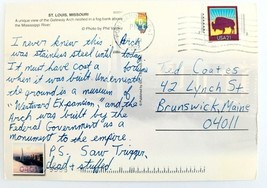 ST. LOUIS, MISSOURI
A unique view of the Gateway Arch
the Mississippi River.
I never knew this Arch
was stainless steel until today.
It must have cost a
when it was built. Underneath
the ground is a museum of
"Westward Expansion", and the
Arch was built by the
Federal Government as a
monument to the empire.
P.S. Saw Trigger,
dead + stuffed
USA21
Ted Coates
42 Lynch St
Brunswick, Maine
04011